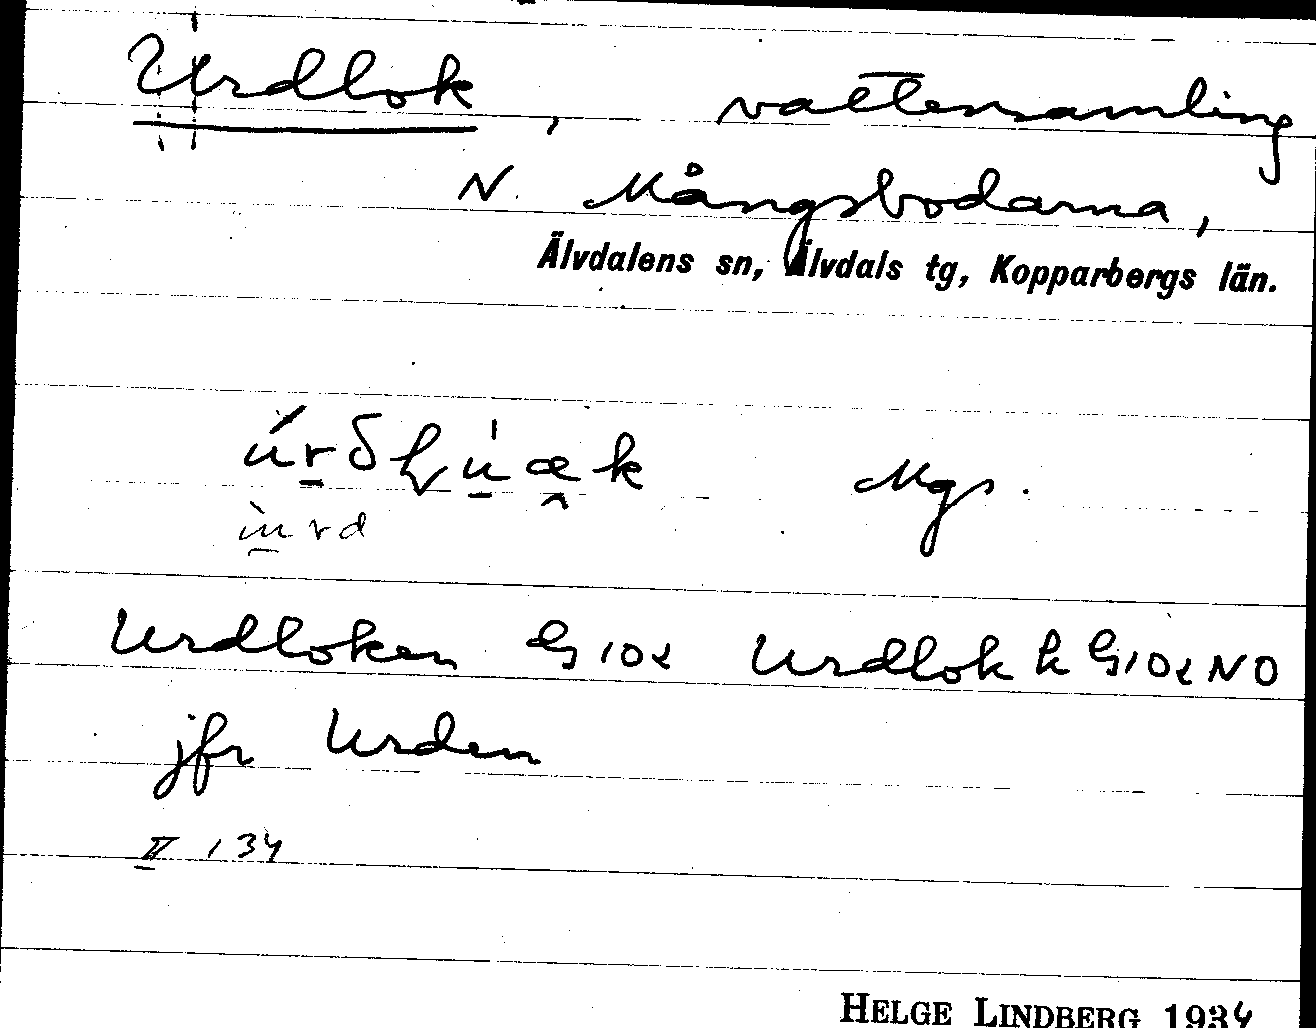 Urdlok, vattensamling
N. Mångsbodarna,
Älvdalens sn, Älvdals tg, Kopparbergs län.
Mgs.
Urdloken G 102 Urdlok k G 102 NO
jfr Urden
II 134
HELGE LINDBERG 1934